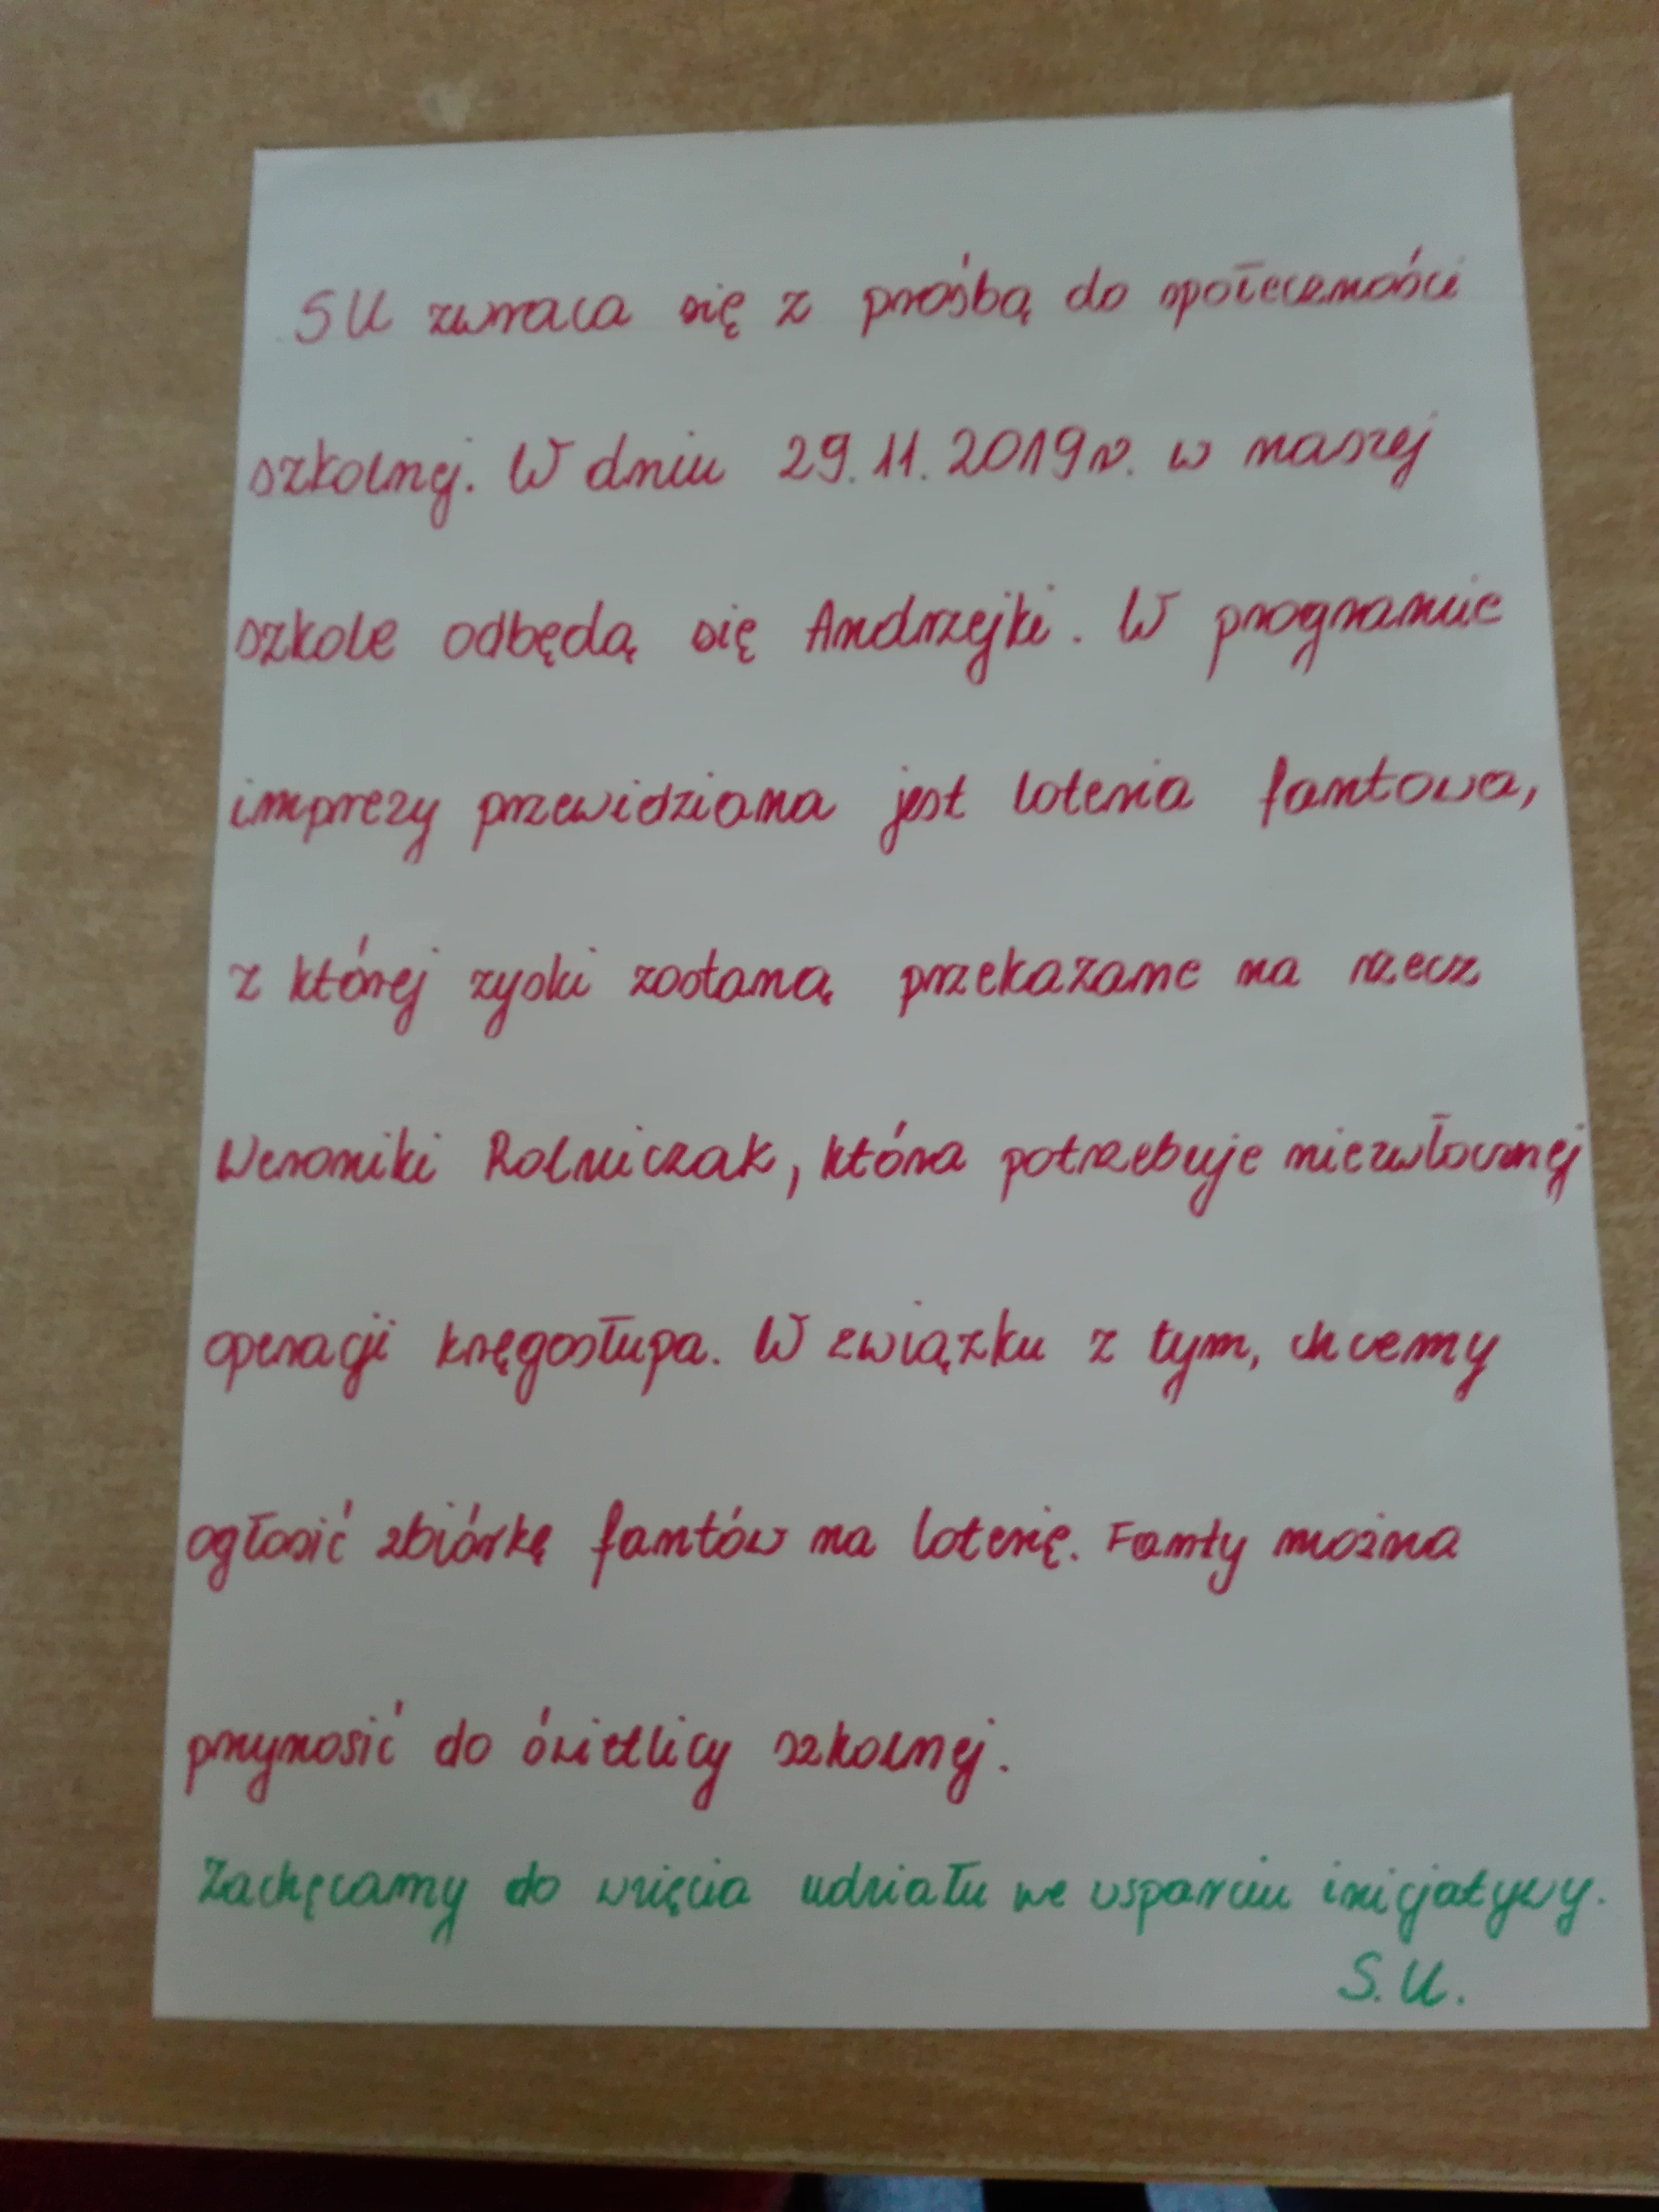 SU zwraca się z prośbą do społeczności
szkolnej. W dniu 29.11.2019r. w naszej
szkole odbędą się Andrzejki. W programie
imprezy przewidziana jest loteria fantowa,
z której zyski zostaną przekazane na rzecz
Weroniki Rolniczak, która potrzebuje niezwłocznej
operacji kręgosłupa. W związku z tym, chcemy
ogłosić zbiórkę fantów na loterię. Fanty można
przynosić do świetlicy szkolnej.
Zachęcamy do wzięcia udziału we wsparciu inicjatywy.
S.U.